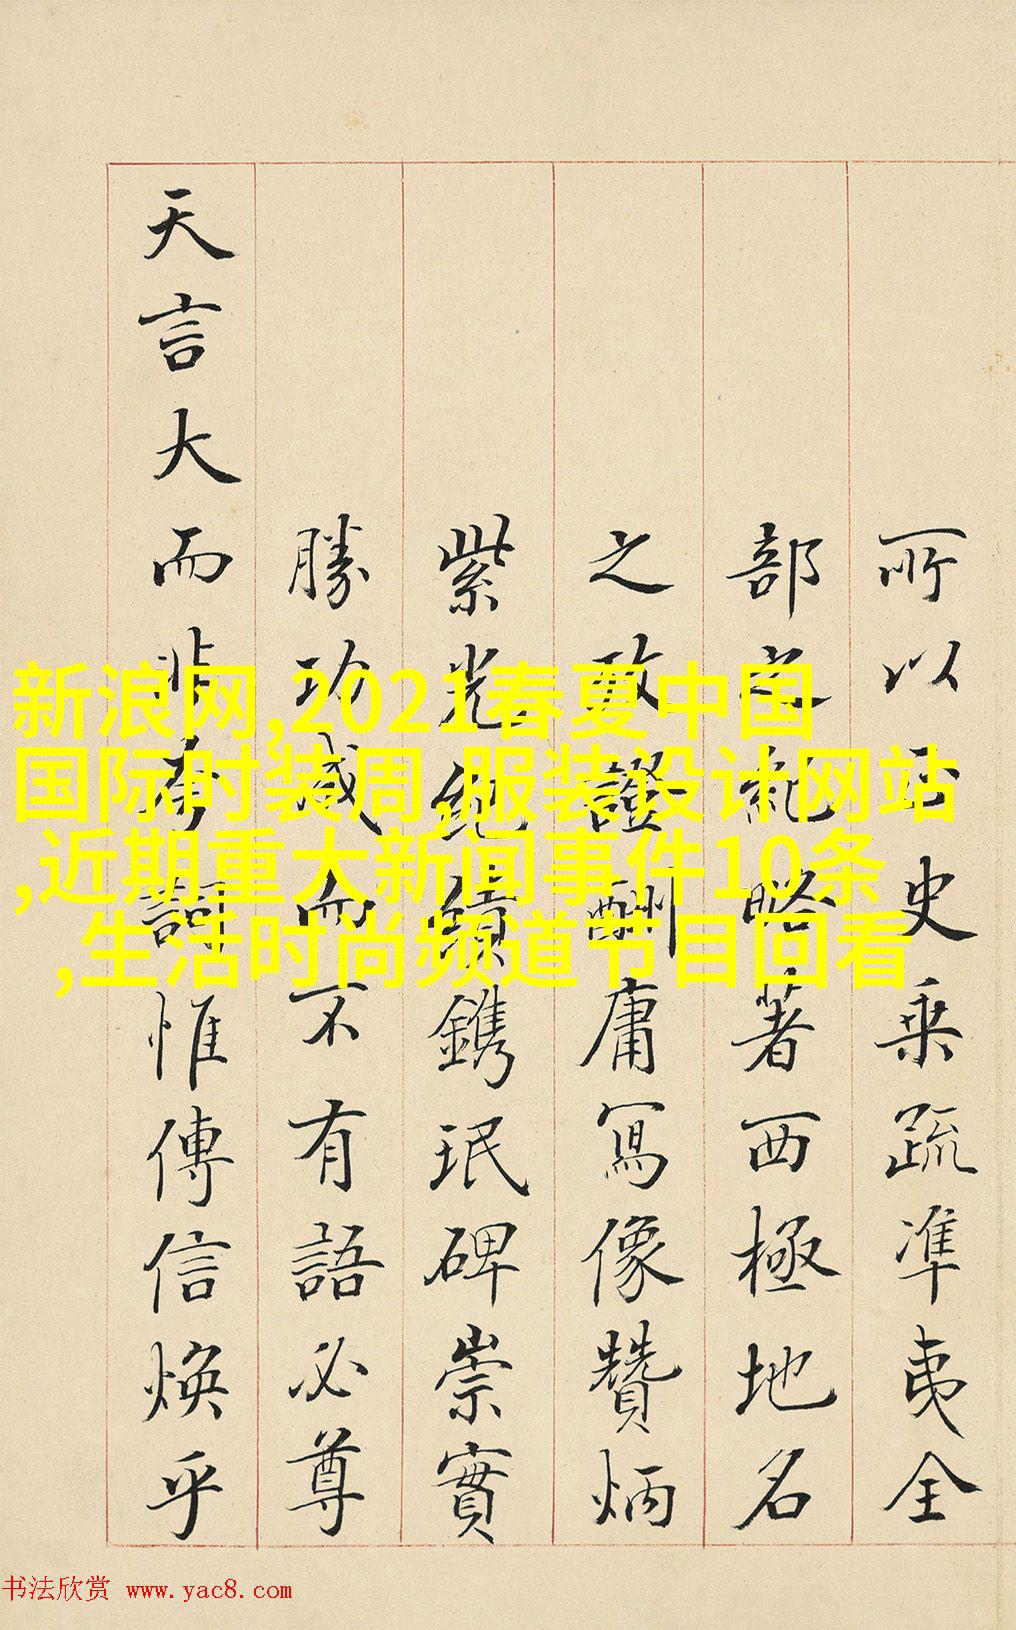 所以史乘疏準夷全
部之紀略著西極地名
之酬庸寫像贊炳
紫光紀績鐫珉碑崇實
勝功成而不有語必尊
天言大而非夸詞惟傳信煥乎
新浪网,2021春夏中国
国际时装周,服装设计网站
,近期重大新闻事件10条
,生活时尚频道节目回看
书法欣赏 www.yac8.com